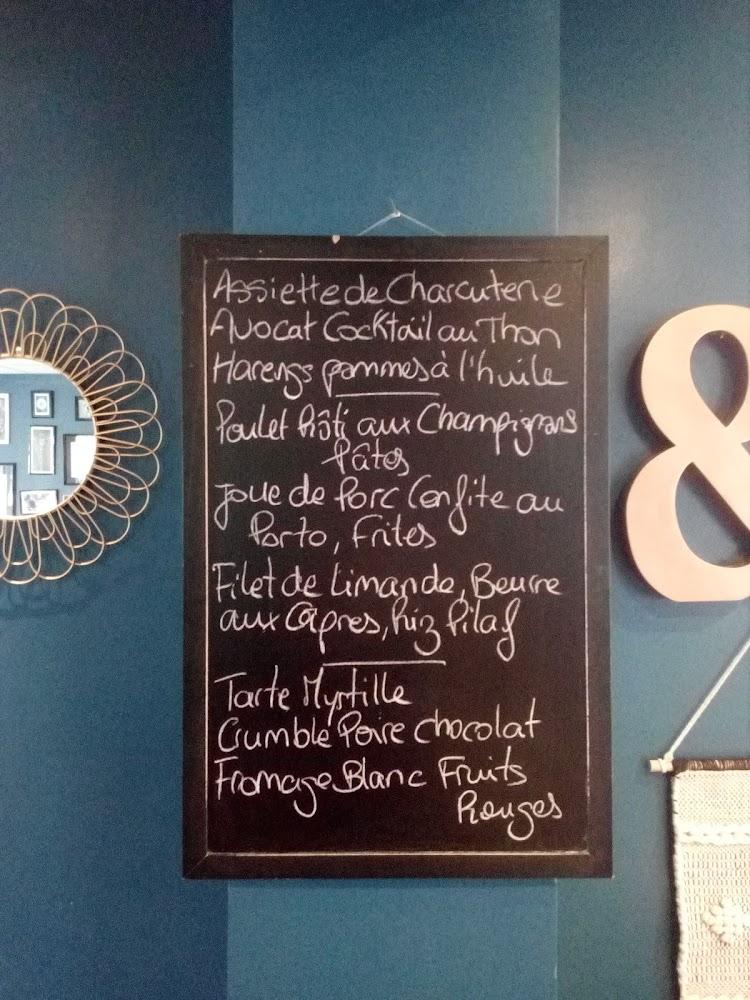 Assiette de Charcuterie
Avocat Cocktail au Thon
Harengs pommes à l'huile
Poulet Rôti aux Champignons
Pâtes
Joue de Porc Confite au
Porto, Frites
Filet de Limande, Beurre
aux Câpres, Riz Pilaf
Tarte Myrtille
Crumble Poire chocolat
Fromage Blanc Fruits
Rouges
&